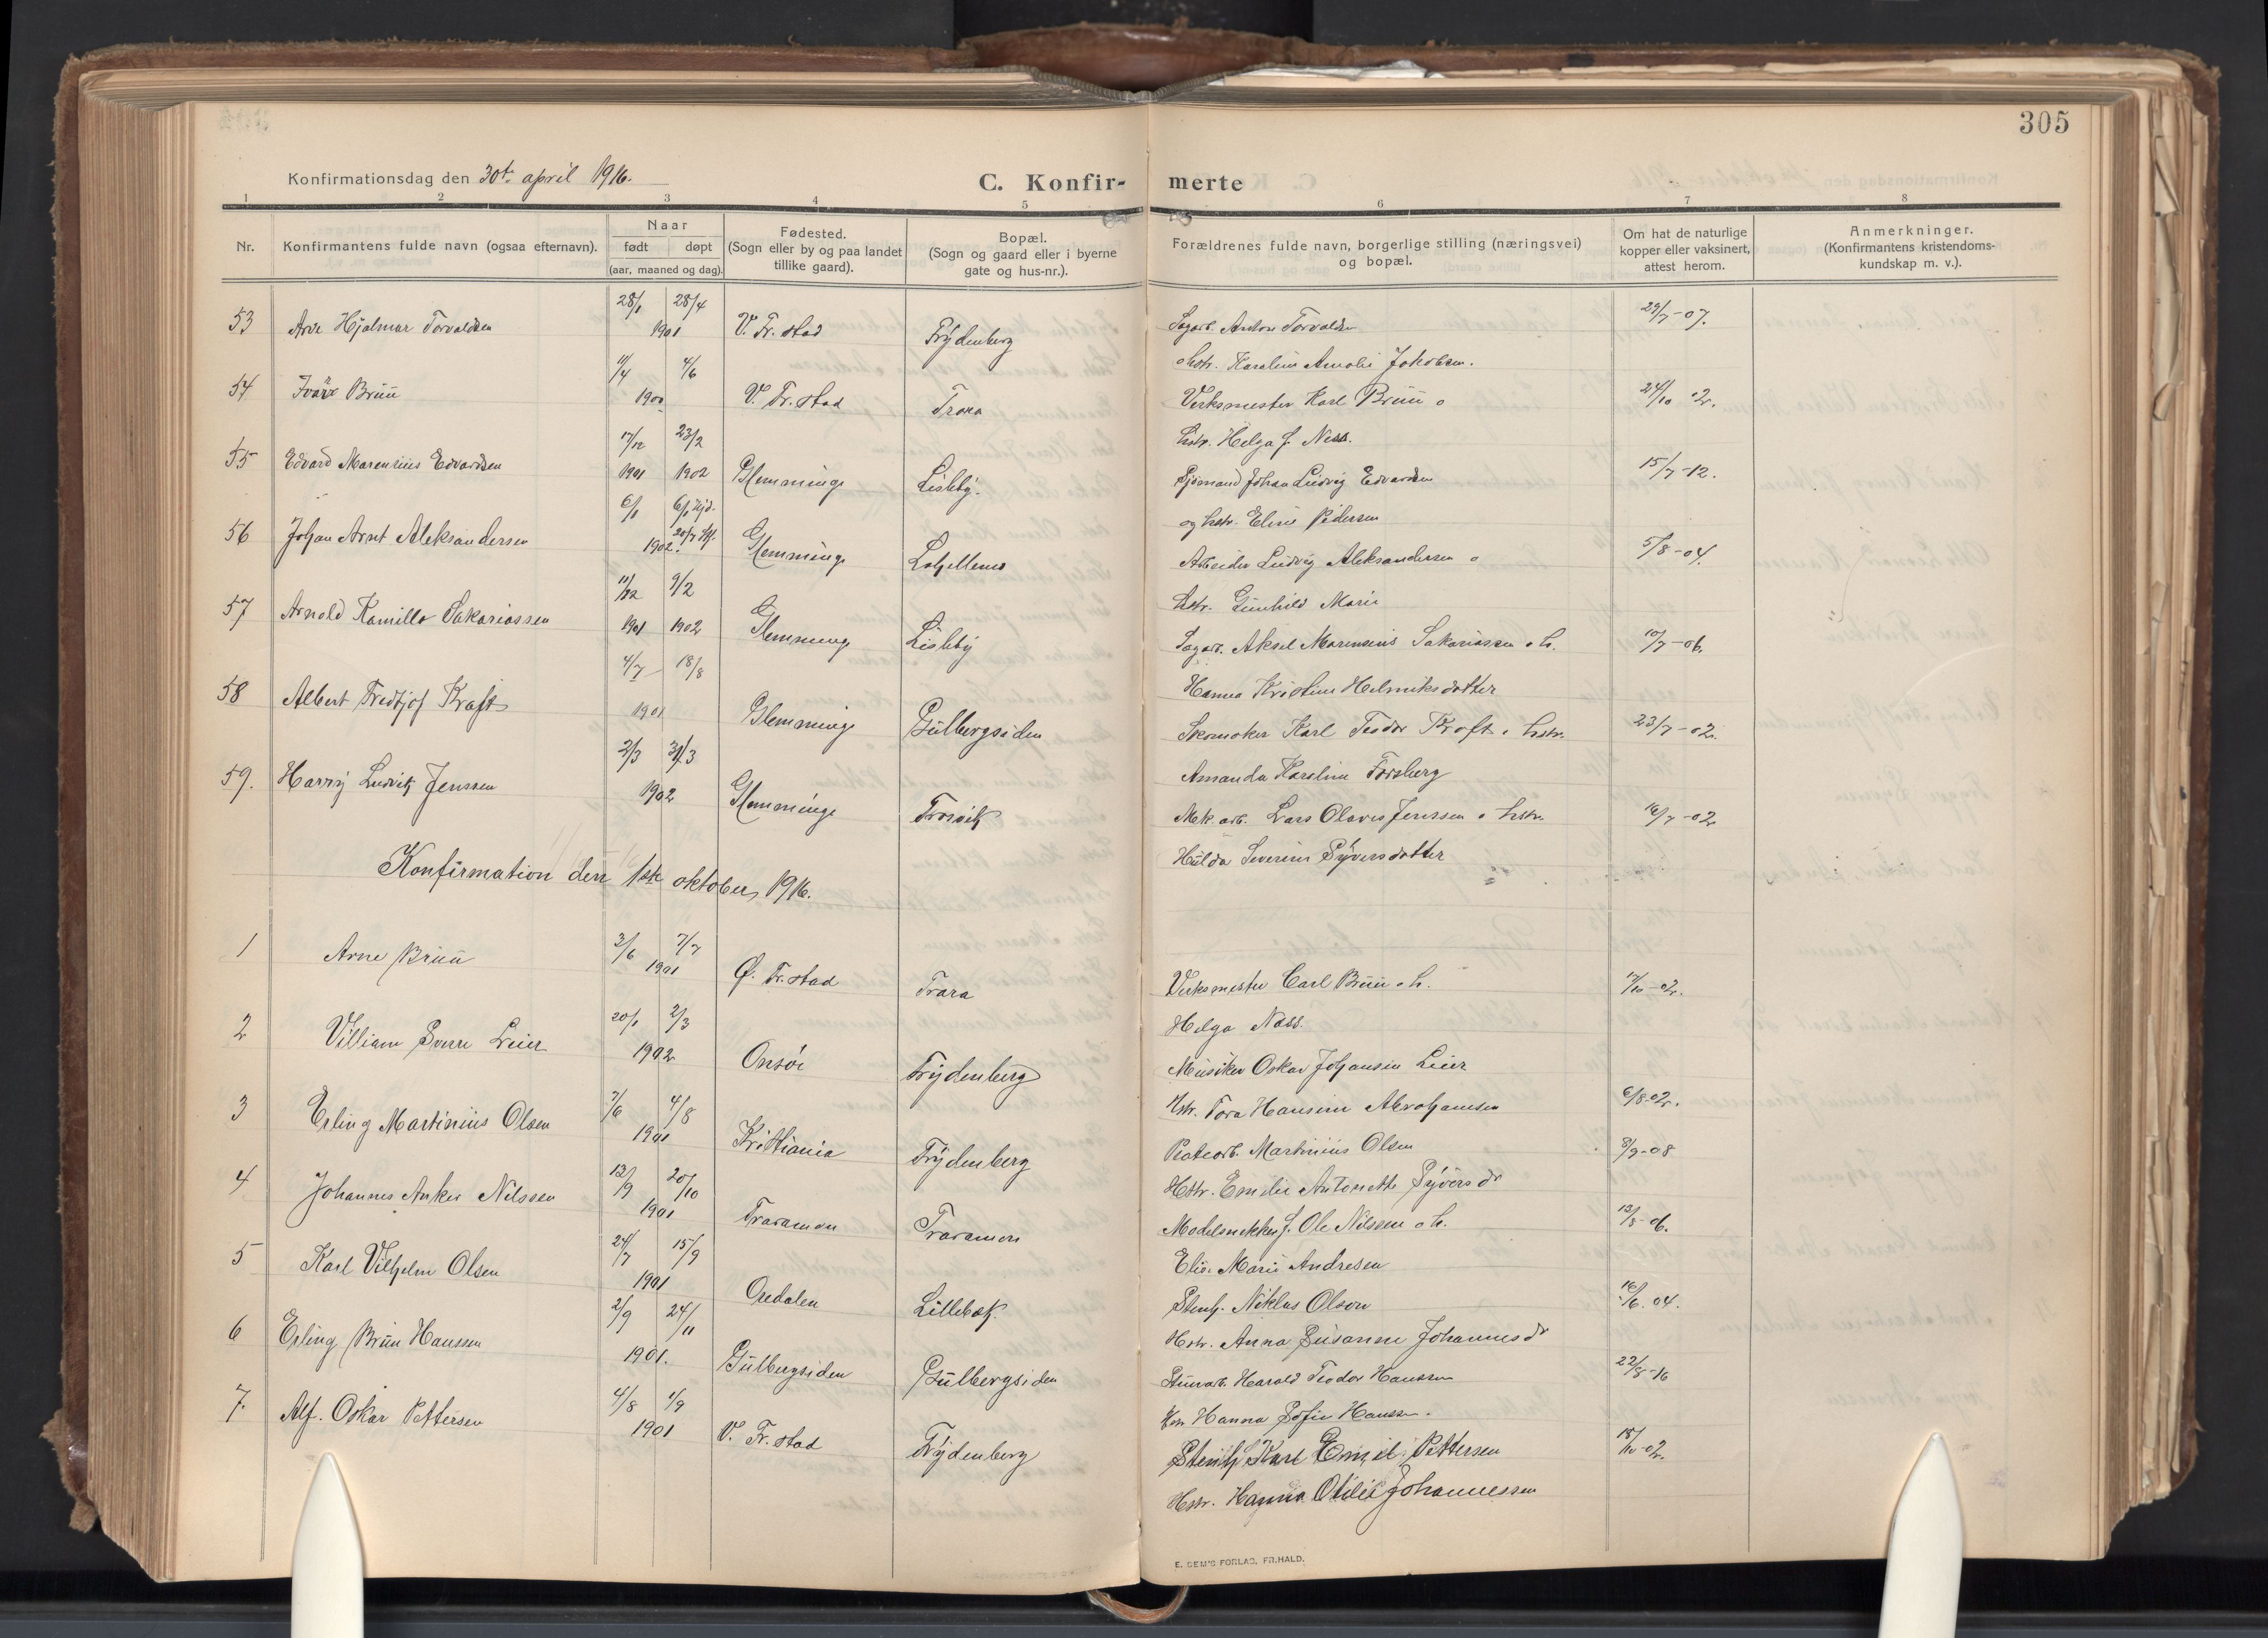 305
Konfirmationsdag den 30te april 1916.
C. Konfir- merte
1 2 3 4 5 6 7 8
Nr.
Konfirmantens fulde navn (ogsaa efternavn).
Naar
født døpt
(aar, maaned og dag).
Fødested.
(Sogn eller by og paa landet
tillike gaard).
Bopæl.
(Sogn og gaard eller i byerne
gate og hus-nr.).
Forældrenes fulde navn, borgerlige stilling (næringsvei)
og bopæl.
Om hat de naturlige
kopper eller vaksinert,
attest herom.
Anmerkninger.
(Konfirmantens kristendoms-
kundskap m. v.).
53 Arve Hjalmar Torvaldsen 28/1 28/4 1901 V. Fr.stad Frydenberg Sagarb. Anton Torvaldsen 29/7-07.
o hstr. Karoline Amalie Jakobsen.
54 Ivar Bruu 11/4 4/6 1900 V. Fr.stad Trara Verksmester Karl Bruu o 24/10 02.
hstr. Helga J. Ness.
55 Edvard Marensius Edvardsen 17/12 23/2 1901 1902 Glemminge Lisleby. Sjømand Johan Ludvig Edvardsen 15/7-12.
og hstr. Eline Pedersen
56 Johan Arnt Aleksandersen 6/1 1902. Glemminge Arbeider Ludvig Aleksandersen o 5/8-04.
hstr. Gunhild Marie
57 Arnold Kamillo Sakariassen 11/12 9/2 1901 1902 Glemminge Lisleby Sagarb. Aksel Marensius Sakariassen o h. 10/7-06.
Hanna Kristine Helmiksdatter
58 Albert Fredtjof Kraft 4/7 18/8 1901 Glemminge Gulbergsiden Skomaker Karl Teodor Kraft o hstr. 23/7-02.
Amanda Karoline Forsberg
59. Harry Ludvik Jenssen 2/3 31/3 1902 Glemminge Trosvik Mek. arb. Lars Olaves Jenssen o hstr. 16/7-02
Hulda Severine Syversdatter
Konfirmation den 1ste oktober 1916.
1 Arne Bruu 3/6 7/7 1901 Ø. Fr.stad Trara Verksmester Carl Bruu o h. 17/10-02.
Helga Næss.
2 Villiam Sverre Leier 20/1 2/3 1902 Onsøe Frydenberg Musiker Oskar Johansen Leier
Hstr. Tora Hansine Abrahamsen 6/8-02.
3 Erling Martinius Olsen 7/6 4/8 1901 Kristiania Frydenberg Platearb. Martinius Olsen 8/9-08
Hstr. Emilie Antonette Syversdr
4 Johannes Anker Nilssen 13/9 20/10 1901 Traramoen Traramoen Modelsnekker J. Ole Nilssen o h. 13/8-06.
Elise Marie Andresen
5 Karl Vilhelm Olsen 24/7 15/9 1901 Oredalen Lillebæk. Stenh. Niklas Olsen 16/6. 04.
Hstr. Anna Susanne Johannesdr
6 Erling Bruu Hanssen 2/9 24/11 1901. Gulbergsiden Gulbergsiden Stuearb. Harald Teodor Hanssen 22/8-16
Hstr. Hanna Sofie Hanssen.
7. Alf. Oskar Pettersen 4/8 1/9 1901 V. Fr.stad Frydenberg Stenh. Karl Emil Pettersen 18/10-02.
Hstr. Hanna Otilie Johannessen
E. SEM'S FORLAG, FR.HALD.